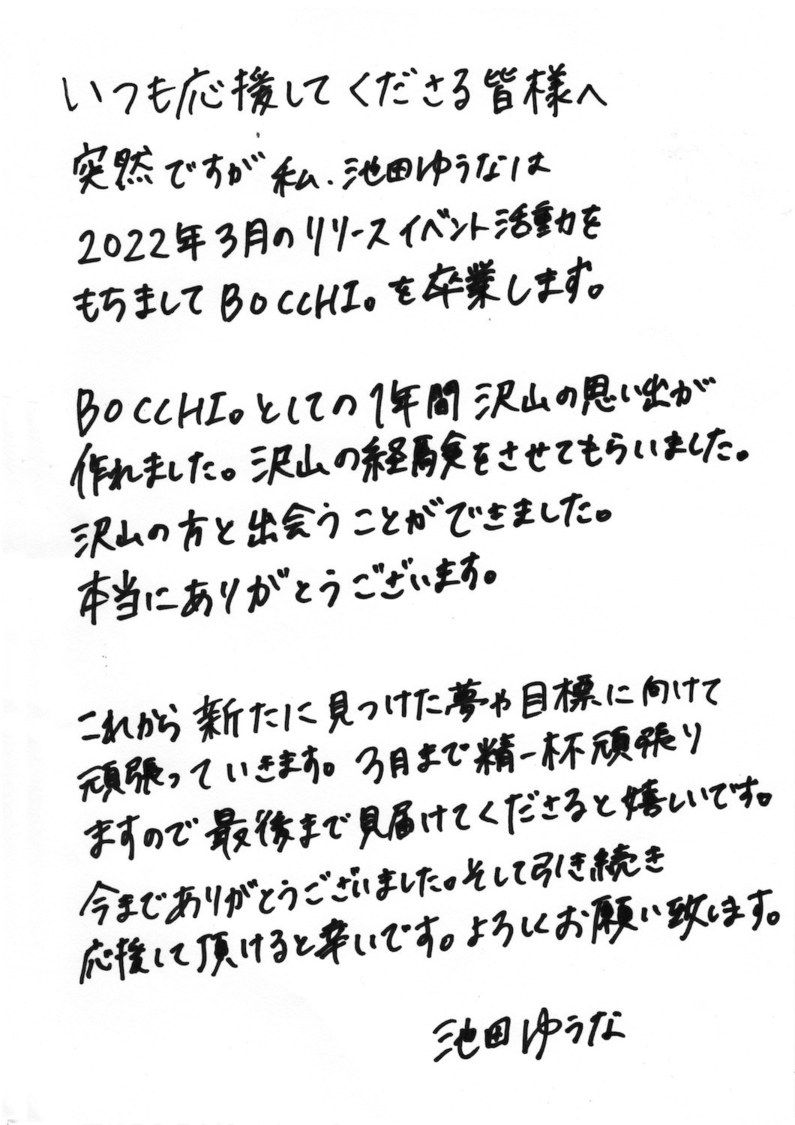 いつも応援してくださる皆様へ
突然ですが私、池田ゆうなは
2022年3月のリリースイベント活動を
もちましてBOCCHI。を卒業します。
BOCCHI。としての1年間沢山の思い出が
作れました。沢山の経験をさせてもらいました。
沢山の方と出会うことができました。
本当にありがとうございます。
これから新たに見つけた夢や目標に向けて
頑張っていきます。3月まで精一杯頑張り
ますので最後まで見届けてくださると嬉しいです。
今までありがとうございました。そして引き続き
応援して頂けると幸いです。よろしくお願い致します。
池田ゆうな